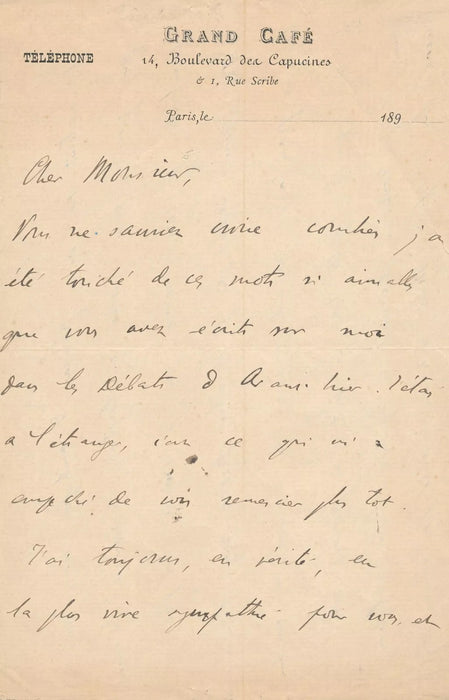 GRAND CAFÉ
TÉLÉPHONE
14, Boulevard des Capucines
& 1, Rue Scribe
Paris, le 189
Cher Monsieur,
Vous ne sauriez croire combien j'ai
été touché de ces mots si aimables
que vous avez écrits sur moi
dans les Débats d'Avant-hier. J'étais
à l'étranger, c'est ce qui m'a
empêché de vous remercier plus tot.
J'ai toujours, en vérité, eu
la plus vive sympathie pour vous et